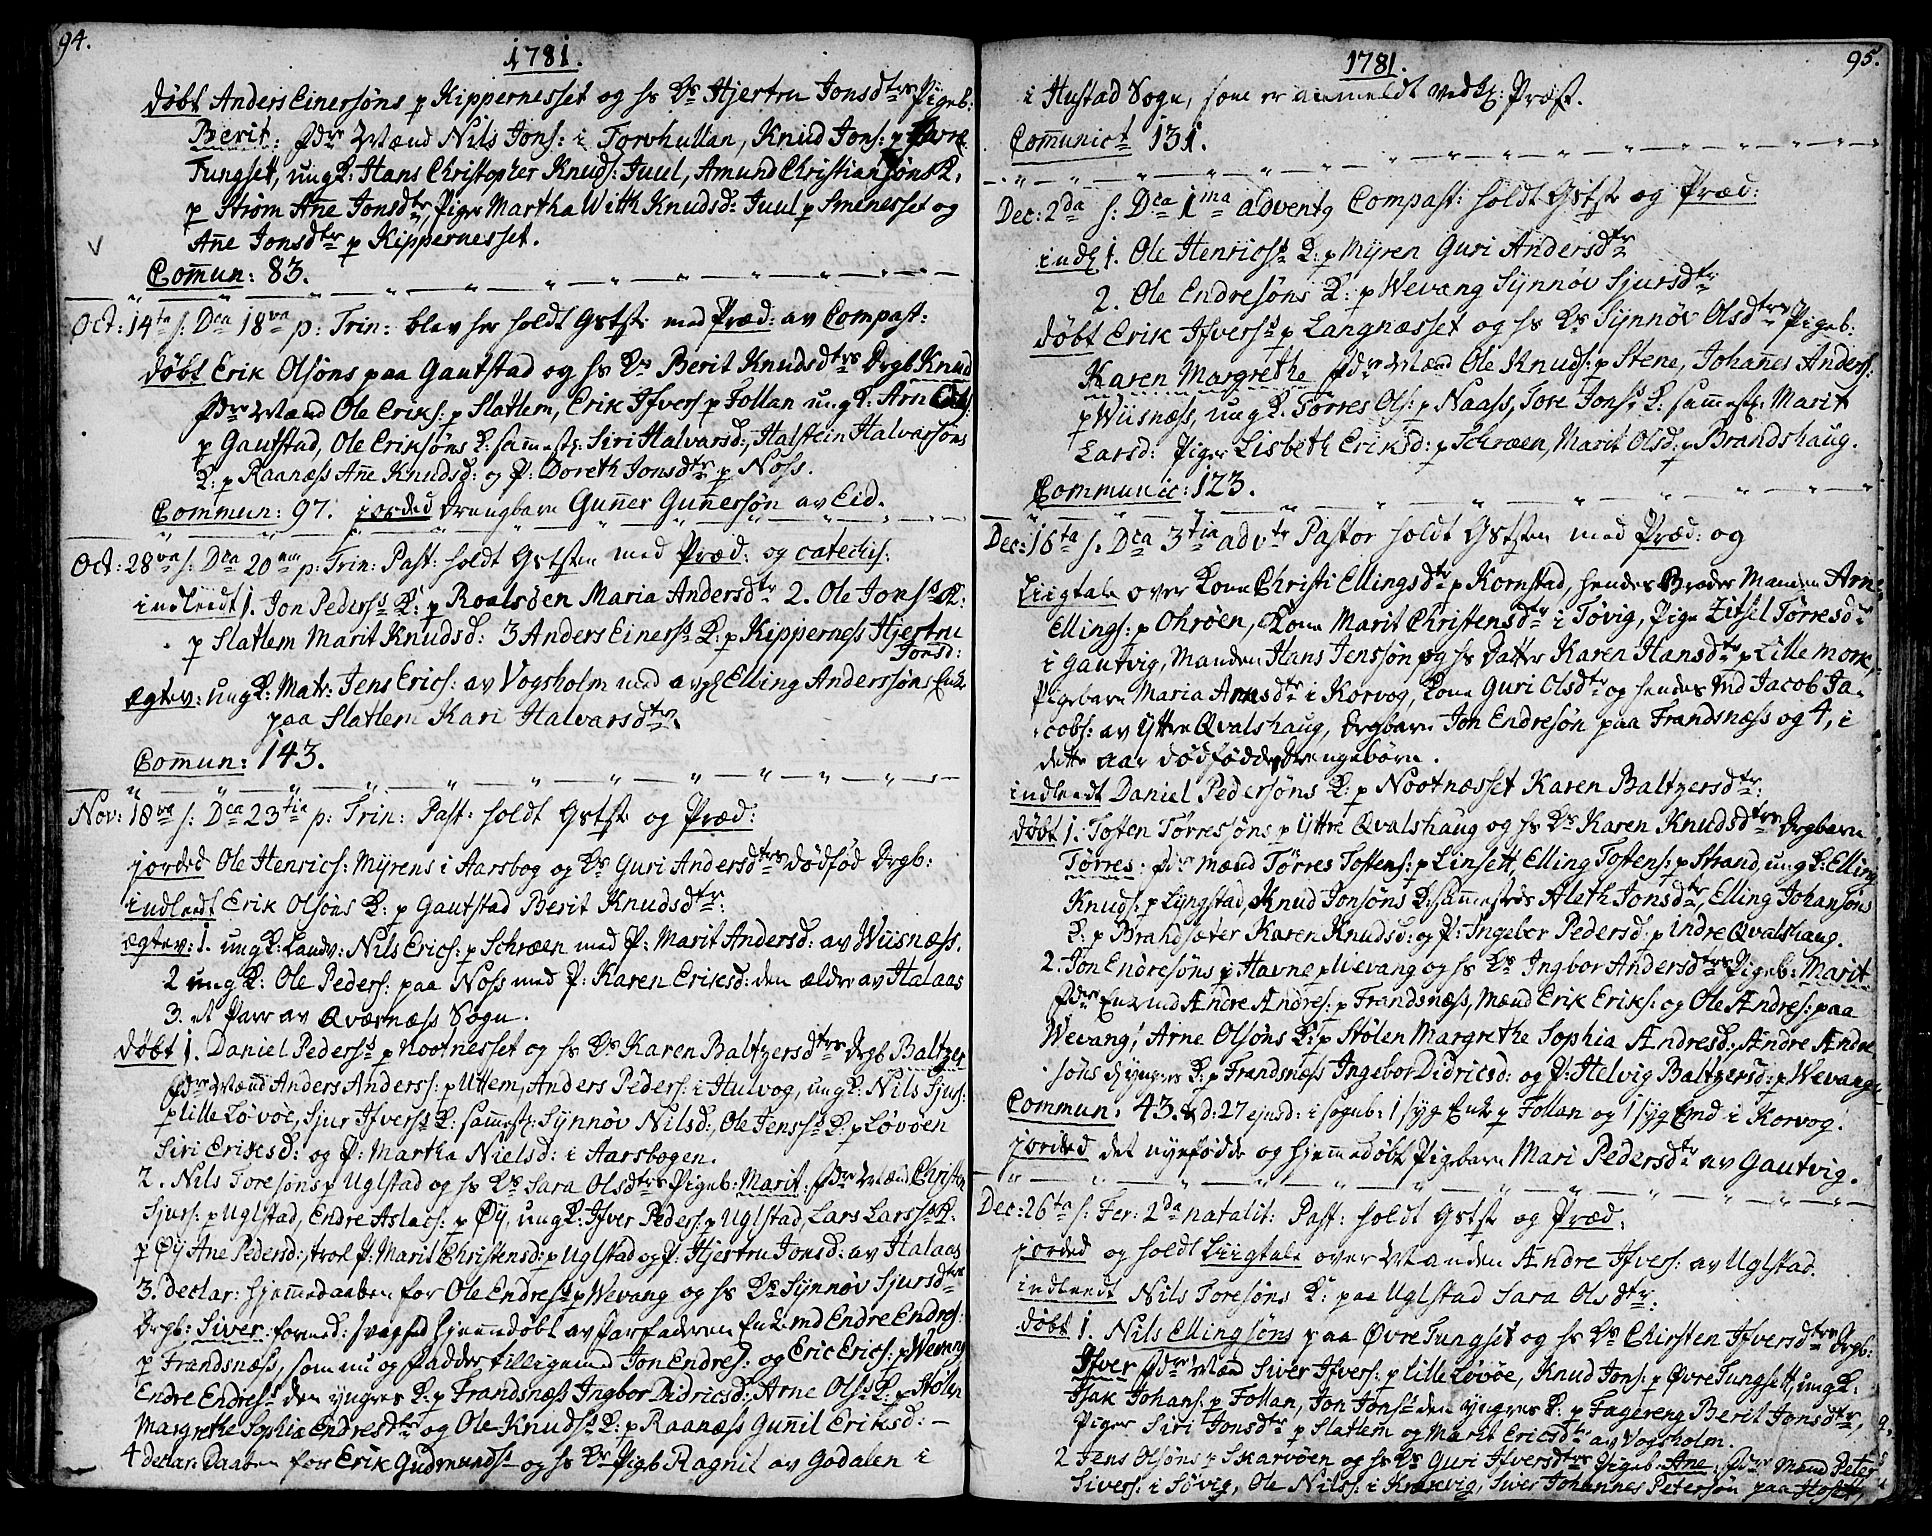 94.
1781.
døbt Anders Einersøns p Kippernesset og hs Ks Hjertru Jonsdtrs Pigeb:
Berit: fdr Mænd Nils Jons: i Torvhullan, Knud Jons: p Øvre
Tungset, ung K: Hans Christopher Knuds: Juul, Amund Christiansøns K:
p Strøm Ane Jonsdtr, Piger Martha With Knudsd: Juul p Smenesset og
Ane Jonsdtr p Kippernesset.
Comun: 83.
Oct: 14ta s: Dca 18va p: Trin: blev her holdt Gstst med Præd: av Compast:
døbt Erik Olsøns paa Gautstad og hs Ks Berit Knudsdtrs Drgb Knud
fdr Mænd Ole Eriks: p Slatlem, Erik Ifvers p Follan ung K: Arn
p Gautstad, Ole Eriksøns K: samest: Siri Halvarsd:, Halstein Halvarsøns
K: p Raanæss Ane Knudsd: og P: Doreth Jonsdtr p Noss.
Commun: 97. jorded Drengbarn Guner Gunersøn av Eid.
Oct: 28va s: Dca 20ma p: Trin: Past: holdt Gststen med Præd: og catechis:
indleedt 1. Jon Peders K: p Roalsøen Maria Andersdtr 2. Ole Jons K:
p Slatlem Marit Knudsd: 3 Anders Einers K: p Kipperness Hjertru
Jonsd:
Ægtev: ung K: Matr: Jens Erics: av Vogsholm med avg Elling Anderssøns Enke
paa Slatlem Kari Halvarsdtr.
Comun: 143.
Nov: 18va s: Dca 23tia p: Trin: Past: holdt Gstst og Præd:
jorded Ole Henrics: Myrens i Aarsbog og Ks Guri Andersdtrs dødfød Drgb:
indleedt Erik Olsøns K: p Gautstad Berit Knudsdtr:
ægtev: 1. ung K: Landv: Nils Erics: p Schrøen med P: Marit Andersd: av Wiisness.
2 ung K: Ole Peders: paa Noss med P: Karen Eriksd: den ældre av Halaas
3. et Parr av Qværness Sogn.
døbt 1. Daniel Peders p Nootnesset og hs Ks Karen Baltzersdtrs Drgb Baltzer
fdr Mænd Anders Anders: p Uttem, Anders Peders: i Hulvog, ung K: Nils Sjurs:
p lille Løvøe, Sjur Ifvers K: samest: Synnøv Nilsd:, Ole Jens K: p Løvøen
Siri Eriksd: og P: Martha Nielsd: i Aarsbogen.
2. Nils Toresøns p Uglstad og hs Ks Sara Olsdtrs Pigeb: Marit: fdr Mænd Christen
Sjurs: p Uglstad, Endre Aslacs: p Øy, ung K: Ifver Peders p Uglstad, Lars Lars K:
p Øy Ane Pedersd:, trol P: Marit Christensd: p Uglstad og P: Hjertru Jonsd: av Halaas
3. declar: hjemedaaben for Ole Endres p Wevang og hs Ks Synnøv Sjursdtrs
Drgb: Siver formed: svaghed hjemdøbt av Farfaderen Enkmd Endre Endres:
p Frandsnæss, som nu og fadder, tilligemed Jon Endres: og Eric Erics: p Wevang
Endre Endres den yngres K: p Frandsnæss Ingbor Didricsd:, Arne Ols K: p Stølen
Margrethe Sophia Endresdtr og Ole Knuds K: p Raanæss Gunnil Eriksd: -
4 declar: Daaben for Erik Gudmunds og hs Ks Pigb Ragnil av Godalen i
95.
1781.
i Hustad Sogn, som er anmeldt ved H: Præst.
Comunict 131.
Dec: 2da s: Dca 1ma adventg Compast: holdt Gstst og Præd:
indl 1. Ole Henrics K: p Myren Guri Andersdtr
2. Ole Endresøns K: p Wevang Synnøv Sjursdtr
døbt Erik Ifvers p Langnæsset og hs Ks Synnøv Olsdtrs Pigeb:
Karen Margrethe fdr Mænd Ole Knuds: p Stene, Johanes Anders:
p Wiisnæss, ung K. Torres Ols: p Naass, Tore Jons K: samest: Marit
Larsd: Piger Lisbeth Eriksd: p Schrøen, Marit Olsd: p Brandshaug.
Communic: 123.
Dec: 16ta s: Dca 3tia advtr Pastor holdt Gststen med Præd: og
Liigtale over Kona Christi Ellingsdtr p Kornstad, hendes Broder Manden Arne
Ellings: p Ohrøen, Kona Marit Christensdtr i Tøvig, Pige Zitsil Torresdtr
i Gautvig, Manden Hans Jenssøn og hs Datter Karen Hansdtr p Lille mork,
Pigebarn Maria Arnsdtr i Korvog, Kona Guri Olsdtr og hendes Md Jacob Ja-
cobs: av Yttre Qvalshaug, Drgbarn Jon Endresøn paa Frandsnæss og 4, i
dette aar dødfødde Drengebørn.
indleedt Daniel Pedersøns K: p Nootnæsset Karen Baltzersdtr:
døbt 1. Tosten Tørresøns p Yttre Qvalshaug og hs Ks Karen Knudsdtrs Drgbarn
Tørres: fdr mænd Tørres Tostens: p Linset, Elling Tostens: p Strand, ung K: Elling
Knuds: p Lyngstad, Knud Jonsøns K: sammesteds Aleth Jonsdtr, Elling Johansøns
K: p Brandsæter Karen Knudsd: og P: Ingebor Pedersd: p indre Qvalshaug.
2. Jon Endresøns p Havne p Wevang og hs Ks Ingbor Andersdtrs Pigeb: Marit
fdr Enkmd Andre Andres: p Frandsnæss, Mænd Erik Eriks: og Ole Andres: paa
Wevang, Arne Olsøns K: p Stølen Margrethe Sophia Andresd:, Andre Andre
søns d yngres K: p Frandsnæss Ingebor Didricsd: og P: Helvig Baltzersd: p Wevang
Commun: 43. & d: 27 ejusd: i sogneb: 1 syg Enk p Follan og 1 syg Emd i Korvog.
jorded det nyefødde og hjemedøbt Pigebarn Mari Pedersdtr av Gautvig.
Dec: 26ta s: Fer: 2da natalit: Past: holdt Gstst og Præd:
jorded og holdt Liigtale over Manden Andre Ifvers: av Uglstad.
indleedt Nils Toresøns K: paa Uglstad Sara Olsdtr:
døbt 1. Nils Ellingsøns paa Øvre Tungset og hs Ks Chirsten Ifversdtrs Drgb:
Ifver fdr Mænd Siver Ifvers: p Lille Løvøe, Knud Jons: p Øvre Tungset, ung K:
Isak Johans: p Follan, Jon Jons den yngres K: p Fagereng Berit Jonsdtr,
Piger Siri Jonsdtr p Slatlem og Marit Ericsdtr av Vogsholm.
2 Jens Olsøns p Skarvøen og hs Ks Guri Ifversdtrs Pigeb: Ane: fdr Mænd Peter
Sivers: i Søvig, Ole Nils: i Krækvig, Siver Johannes Petersøn paa